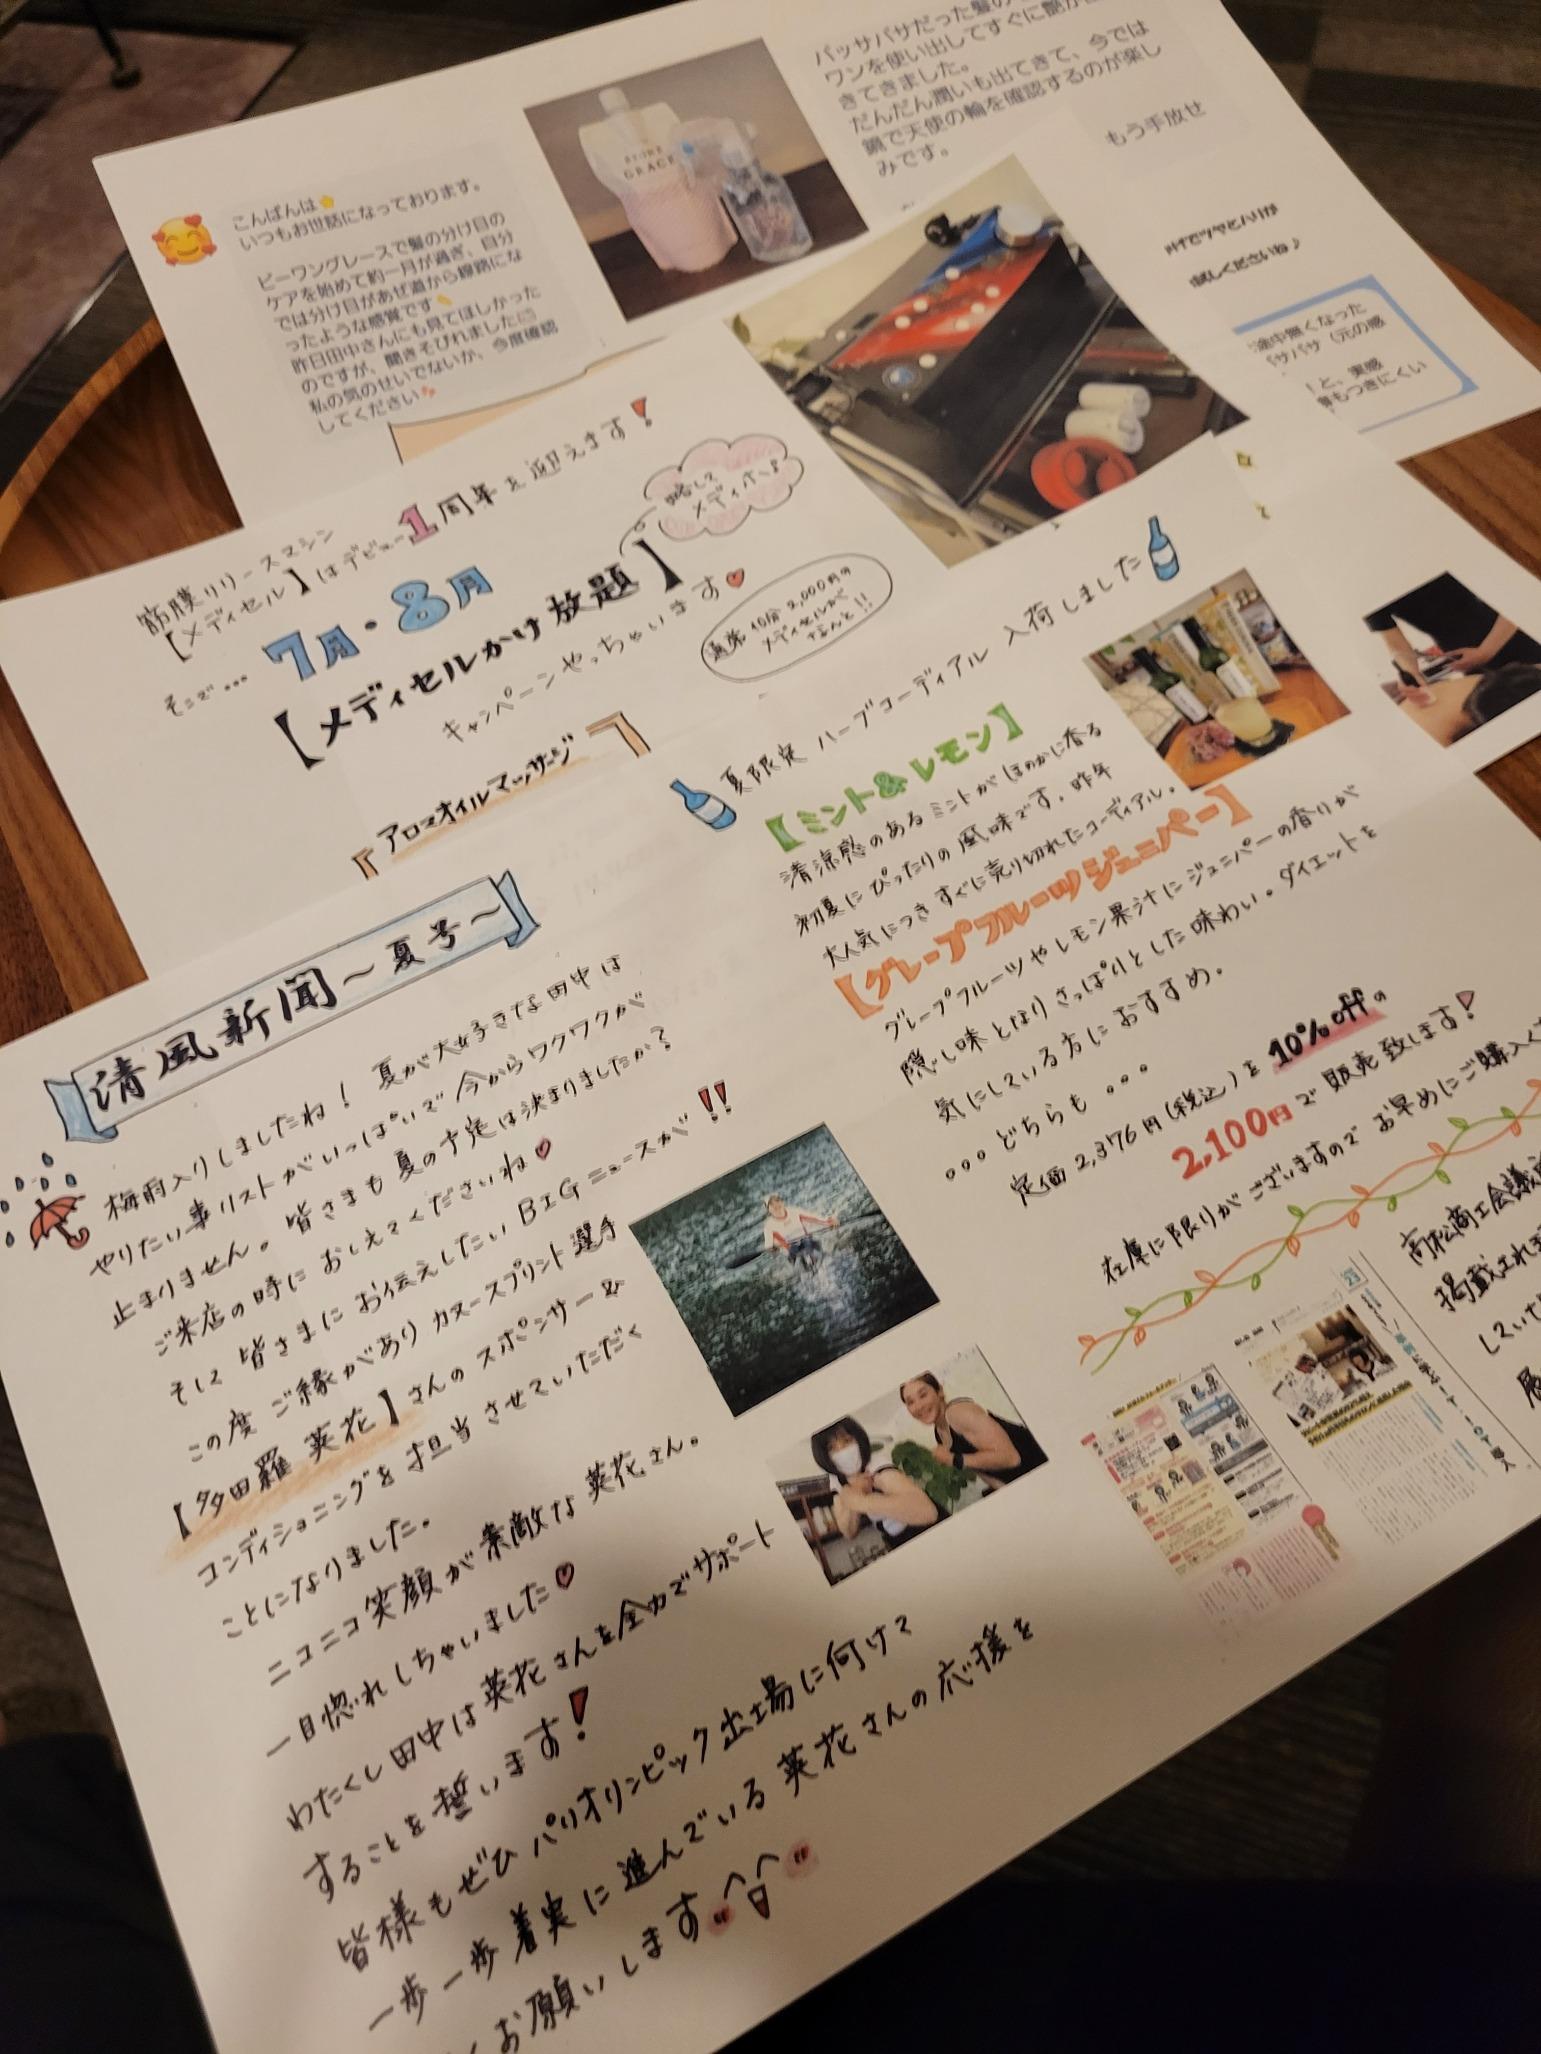 バッサバサだった髪の
ワンを使い出してすぐに艶が
きてきました。
だんだん潤いも出てきて、今では
鏡で天使の輪を確認するのが楽し
みです。
もう手放せ
こんばんは
いつもお世話になっております。
ビーワングレースで髪の分け目の
ケアを始めて約一月が過ぎ、自分
では分け目があぜ道から線路にな
ったような感覚です
昨日田中さんにも見てほしかった
のですが、聞きそびれました
私の気のせいでないか、今度確認
してください
GRACE
試しくださいね♪
途中無くなった
サバサ（元の感
と、実感
もつきにくい
筋膜リリースマシン
【メディセル】はデビュー1周年を迎えます!
そこで…
7月・8月
【メディセルかけ放題】
略して
メディホ♪
キャンペーンやっちゃいます
通常10分2,000円の
メディセルが
なんと!!
アロマオイルマッサージ
夏限定 ハーブコーディアル 入荷しました
【ミント&レモン】
清涼感のあるミントがほのかに香る
初夏にぴったりの風味です。昨年
大人気につきすぐに売り切れたコーディアル。
【グレープフルーツジュニパー】
グレープフルーツやレモン果汁にジュニパーの香りが
隠し味となりさっぱりとした味わい。ダイエットを
気にしている方におすすめ。
。。。どちらも。。。
定価2,376円(税込)を10%offの
2,100円で販売致します!
在庫に限りがございますのでお早めにご購入く
高松商工会議
掲載され
していた
展
清風新聞〜夏号〜
梅雨入りしましたね! 夏が大好きな田中は
やりたい事リストがいっぱいで今からワクワクが
止まりません。皆さまも夏の予定は決まりましたか?
ご来店の時におしえてくださいね♡
そして皆さまにお伝えしたいBIGニュースが!!
この度ご縁がありカヌースプリント選手
【多田羅 英花】さんのスポンサー&
コンディショニングを担当させていただく
ことになりました。
ニコニコ笑顔が素敵な英花さん。
一目惚れしちゃいました♡
わたくし田中は英花さんを全力でサポート
することを誓います!
皆様もぜひパリオリンピック出場に向けて
一歩一歩着実に進んでいる英花さんの応援を
お願いします